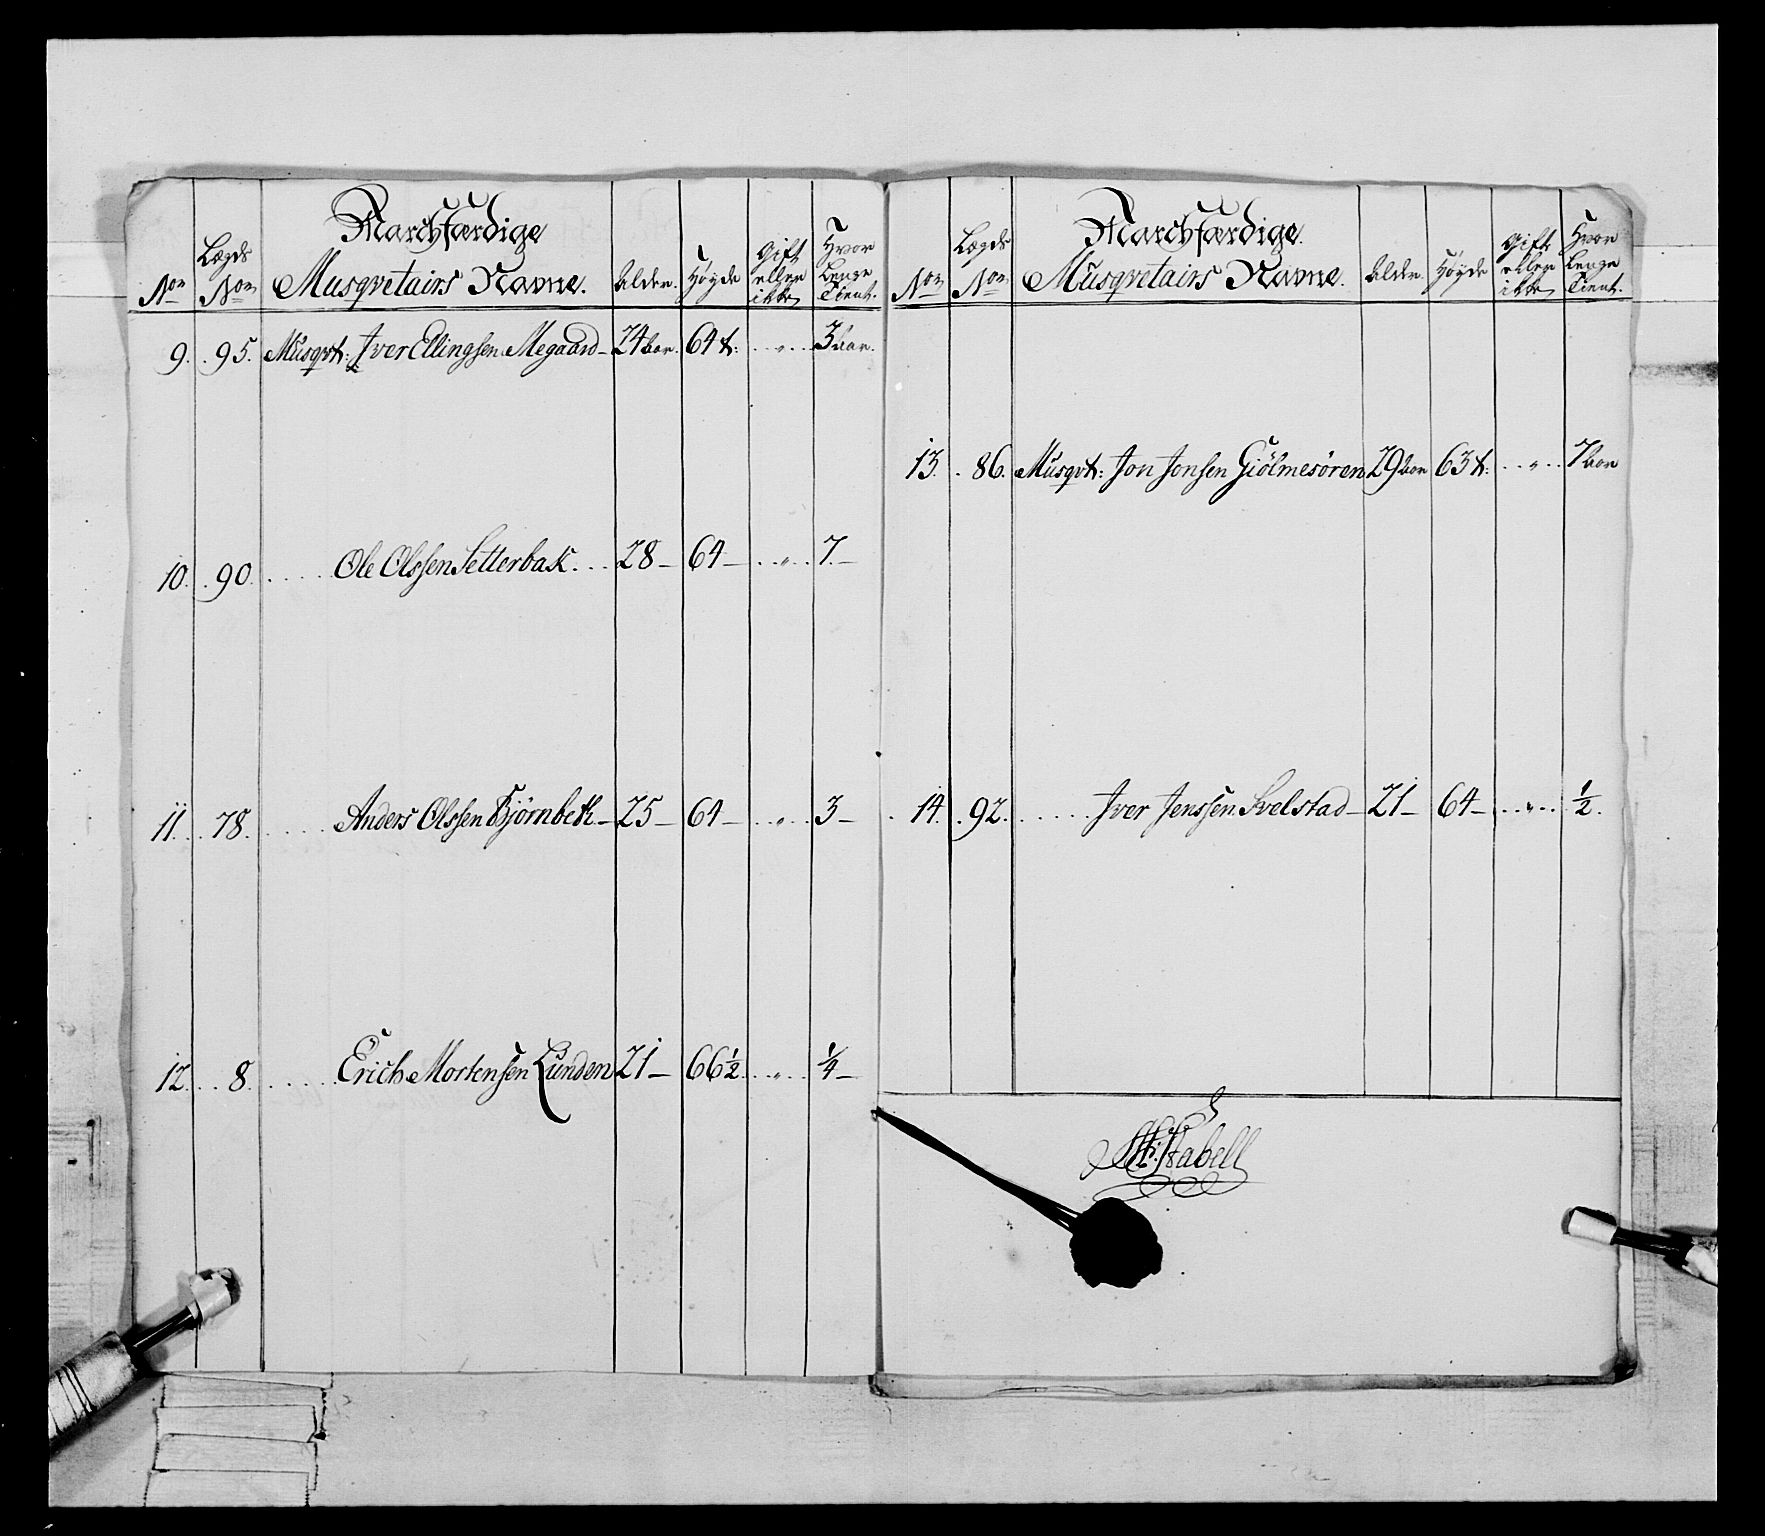 Nor Lægds Nor Marchfærdige Musqvetairs Navne. Alder. Høyde Gift eller ikke Hvor Lenge Tient.
9. 95. Musqvt: Iver Ellingsen Megaard 24 aar. 64 t: „ 3 aar.
10. 90. Ole Olssen Setterbak 28 64 „ 7.
11. 78. Anders Olssen Björnbek 25 64 „ 3
12. 8. Erich Mortensen Lunden 21 66½ „ ¼
Nor Lægds Nor Marchfærdige Musqvetairs Navne. Alder. Høyde Gift eller ikke Hvor Lenge Tient.
13. 86. Musqvt: Jon Jonsen Giölmesören 29 aar 63 t: „ 7 aar
14. 92. Iver Jenssen Svelstad 21 64 „ ½.
Stabell